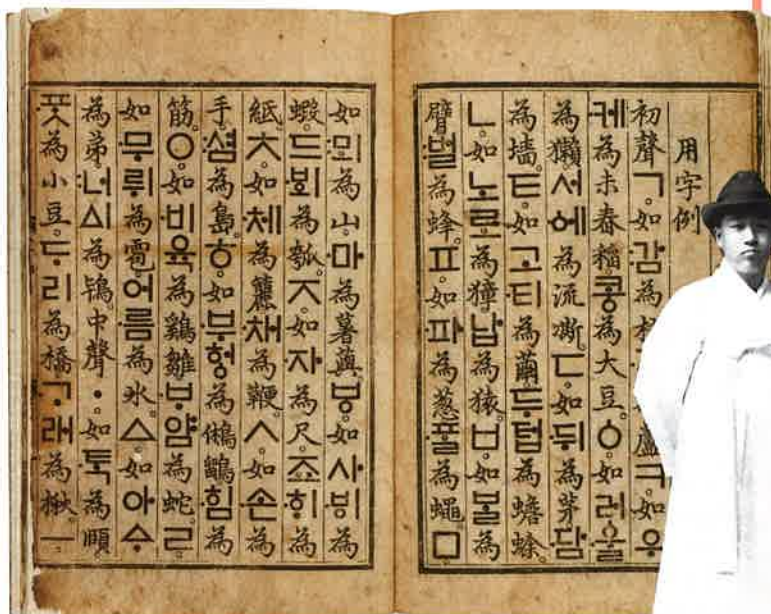 用字例
初聲ㄱ。如:감為 蘆。ㅋ。如우
·케為未舂稻。콩為大豆。ㆁ。如러·울
為獺。서·에為流凘。ㄷ。如·뒤為茅。·담
為墻。ㅌ。如고·티為繭。두텁為蟾蜍。
ㄴ。如노로為獐。납為猿。ㅂ。如ᄇᆞᆯ為
臂。:벌為蜂。ㅍ。如·파為葱。·ᄑᆞᆯ為蠅。ㅁ。
如:뫼為山。·마為薯藇。ㅸ。如사·ᄫᅵ為
蝦。드·ᄫᅴ為瓠。ㅈ。如·자為尺。죠·ᄒᆡ為
紙。ㅊ。如·체為籭。·채為鞭。ㅅ。如·손為
手。:셤為島。ㅎ。如·부헝為鵂鶹。·힘為
筋。ㅇ。如·비육為鷄雛。·ᄇᆞ얌為蛇。ㄹ。
如·무뤼為雹。어·름為氷。ㅿ。如아ᅀᆞ
為弟。:너ᅀᅵ為鴇。中聲ㆍ。如·ᄐᆞᆨ為頤。
·ᄑᆞᆺ為小豆。ᄃᆞ리為橋。·ᄀᆞ래為楸。ㅡ。